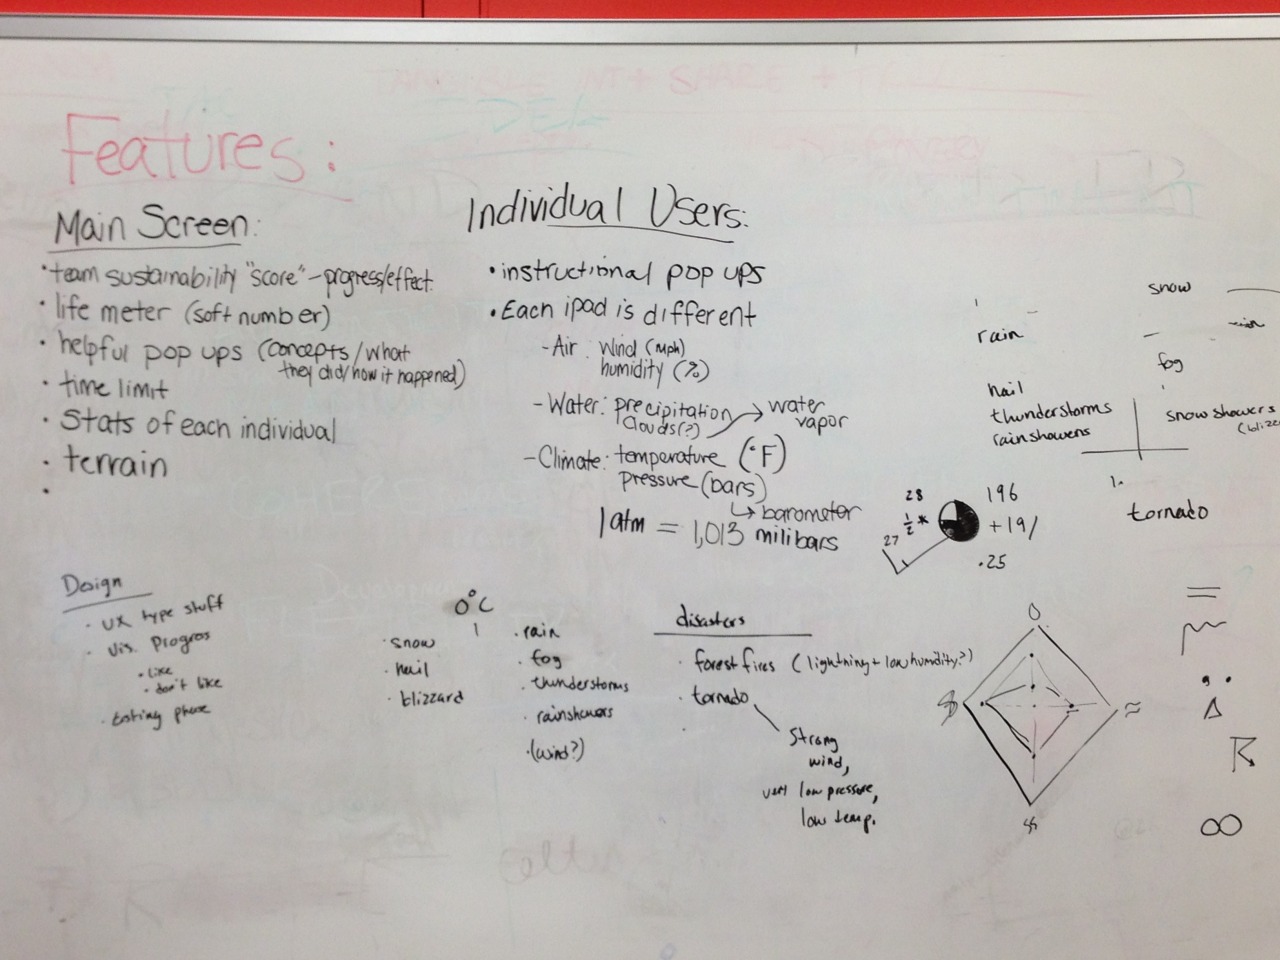 Features:
Main Screen:
• team sustainability "score" - progress/effect.
• life meter (soft number)
• helpful pop ups (concepts/what
they did/how it happened)
• time limit
• Stats of each individual
• terrain
•
Individual Users:
• instructional pop ups
• Each ipad is different
- Air: Wind (mph)
humidity (%)
- Water: precipitation → water
clouds(?) vapor
- Climate: temperature (°F)
pressure (bars)
↳ barometer
1 atm = 1,013 milibars
snow
rain
fog
hail
thunderstorms
rainshowers
snowshowers
1.
tornado
28 196
½ * +19/
27 .25
Design
• UX type stuff
• Vis. Progros
• like
• don't like
• testing phase
0°C
• snow
• hail
• blizzard
• rain
• fog
• thunderstorms
• rainshowers
• (wind?)
disasters
• forest fires (lightning + low humidity?)
• tornado
Strong
wind,
very low pressure,
low temp.
=
≈
∞